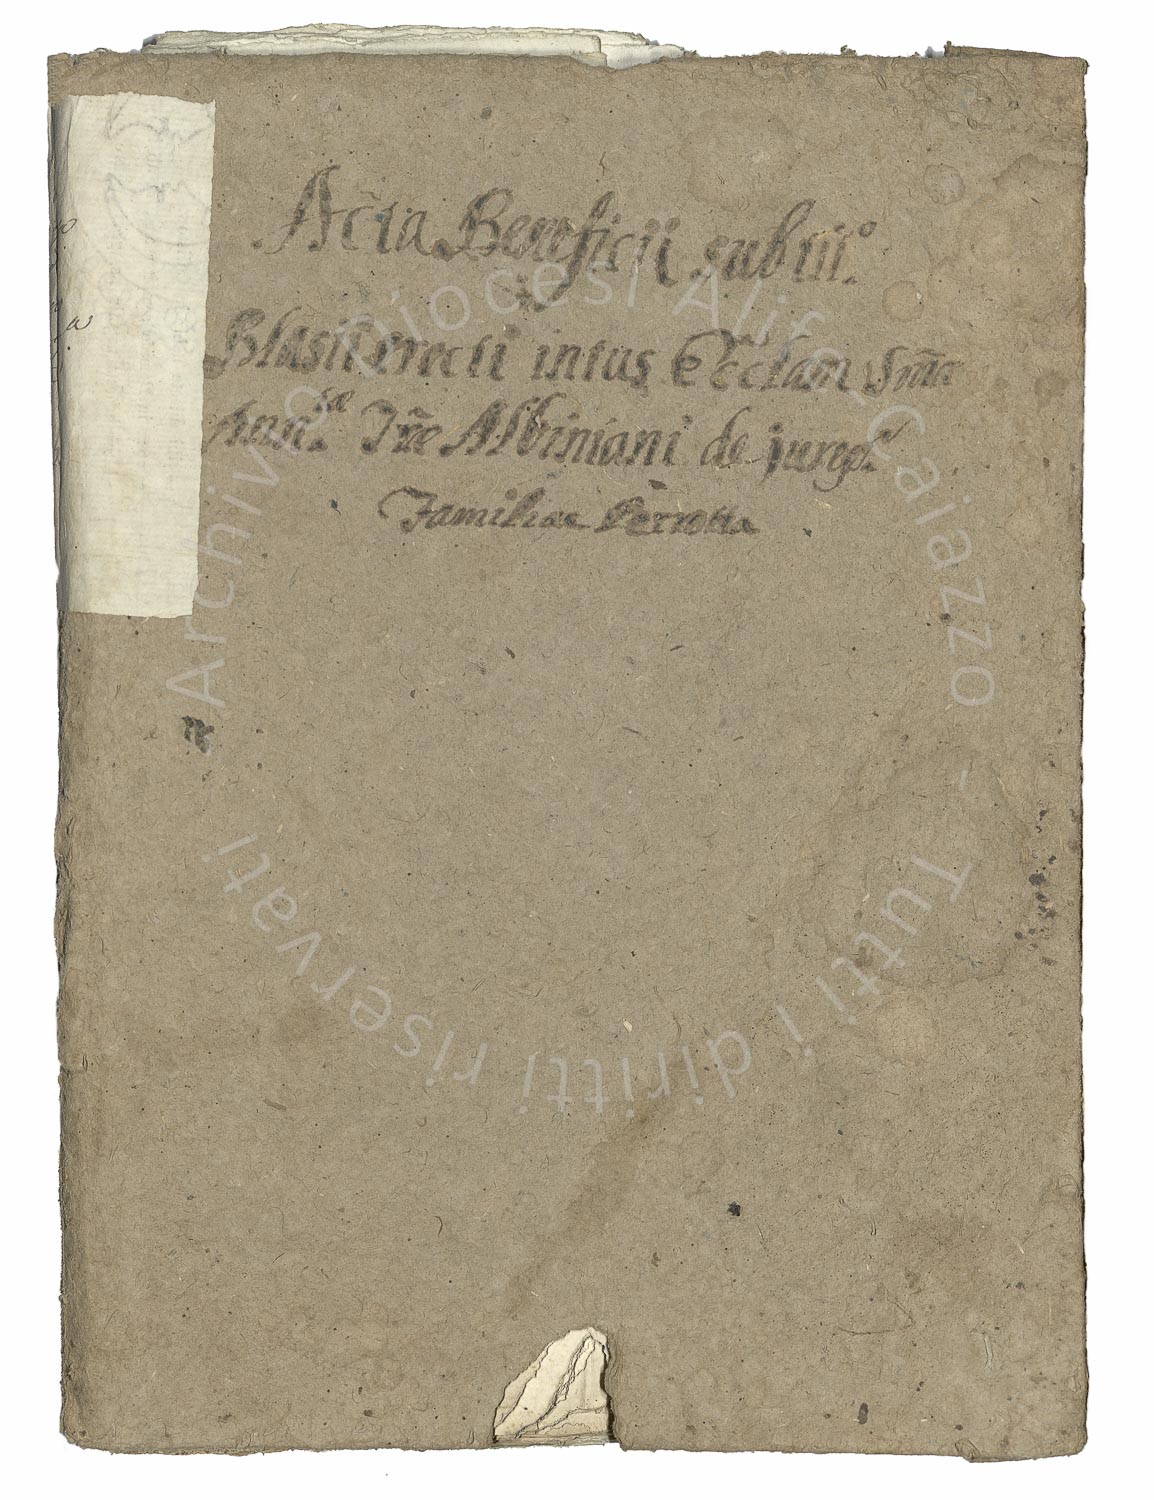 Acta Beneficii sub tit.º
S.
Blasii erecti intus Ecclam Smæ
Ann.æ Træ Albiniani de jurep.s
Familiae Perrotta
Archivio Diocesi Alife-Caiazzo - Tutti i diritti riservati